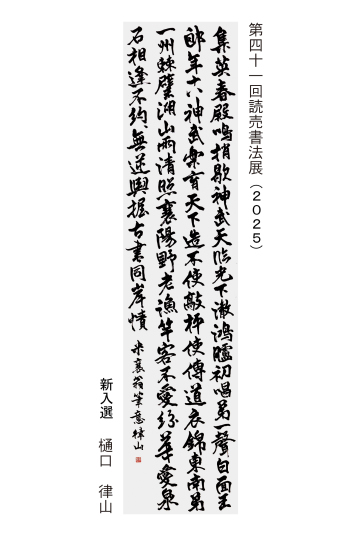 第四十一回読売書法展（2025）
集英春殿鳴捎歇神武天臨光下澈鴻臚初唱第一聲白面玉
郎年十八神武樂育天下造不使敲枰使傳道衣錦東南第
一州棘璧湖山兩清照襄陽野老漁竿客不愛紛華愛泉
石相逢不約無逆與握古書同岸幘 米襄翁筆意 律山
新入選 樋口 律山